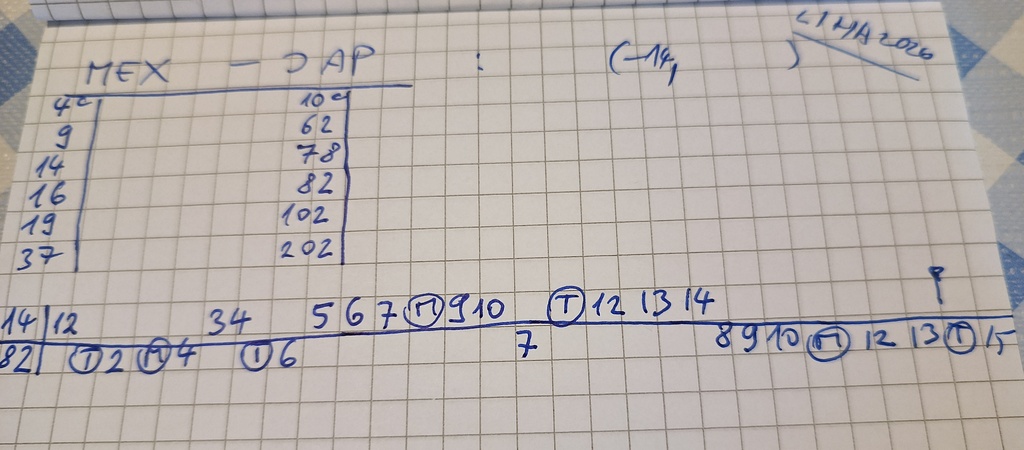 LIMA 2026
MEX - JAP : (-14, )
4c 10c
9 62
14 78
16 82
19 102
37 202
14 | 12 34 5 6 7 Ⓜ 9 10 Ⓣ 12 13 14
82 | Ⓣ 2 Ⓜ 4 Ⓣ 6 7 8 9 10 Ⓜ 12 13 Ⓣ 15